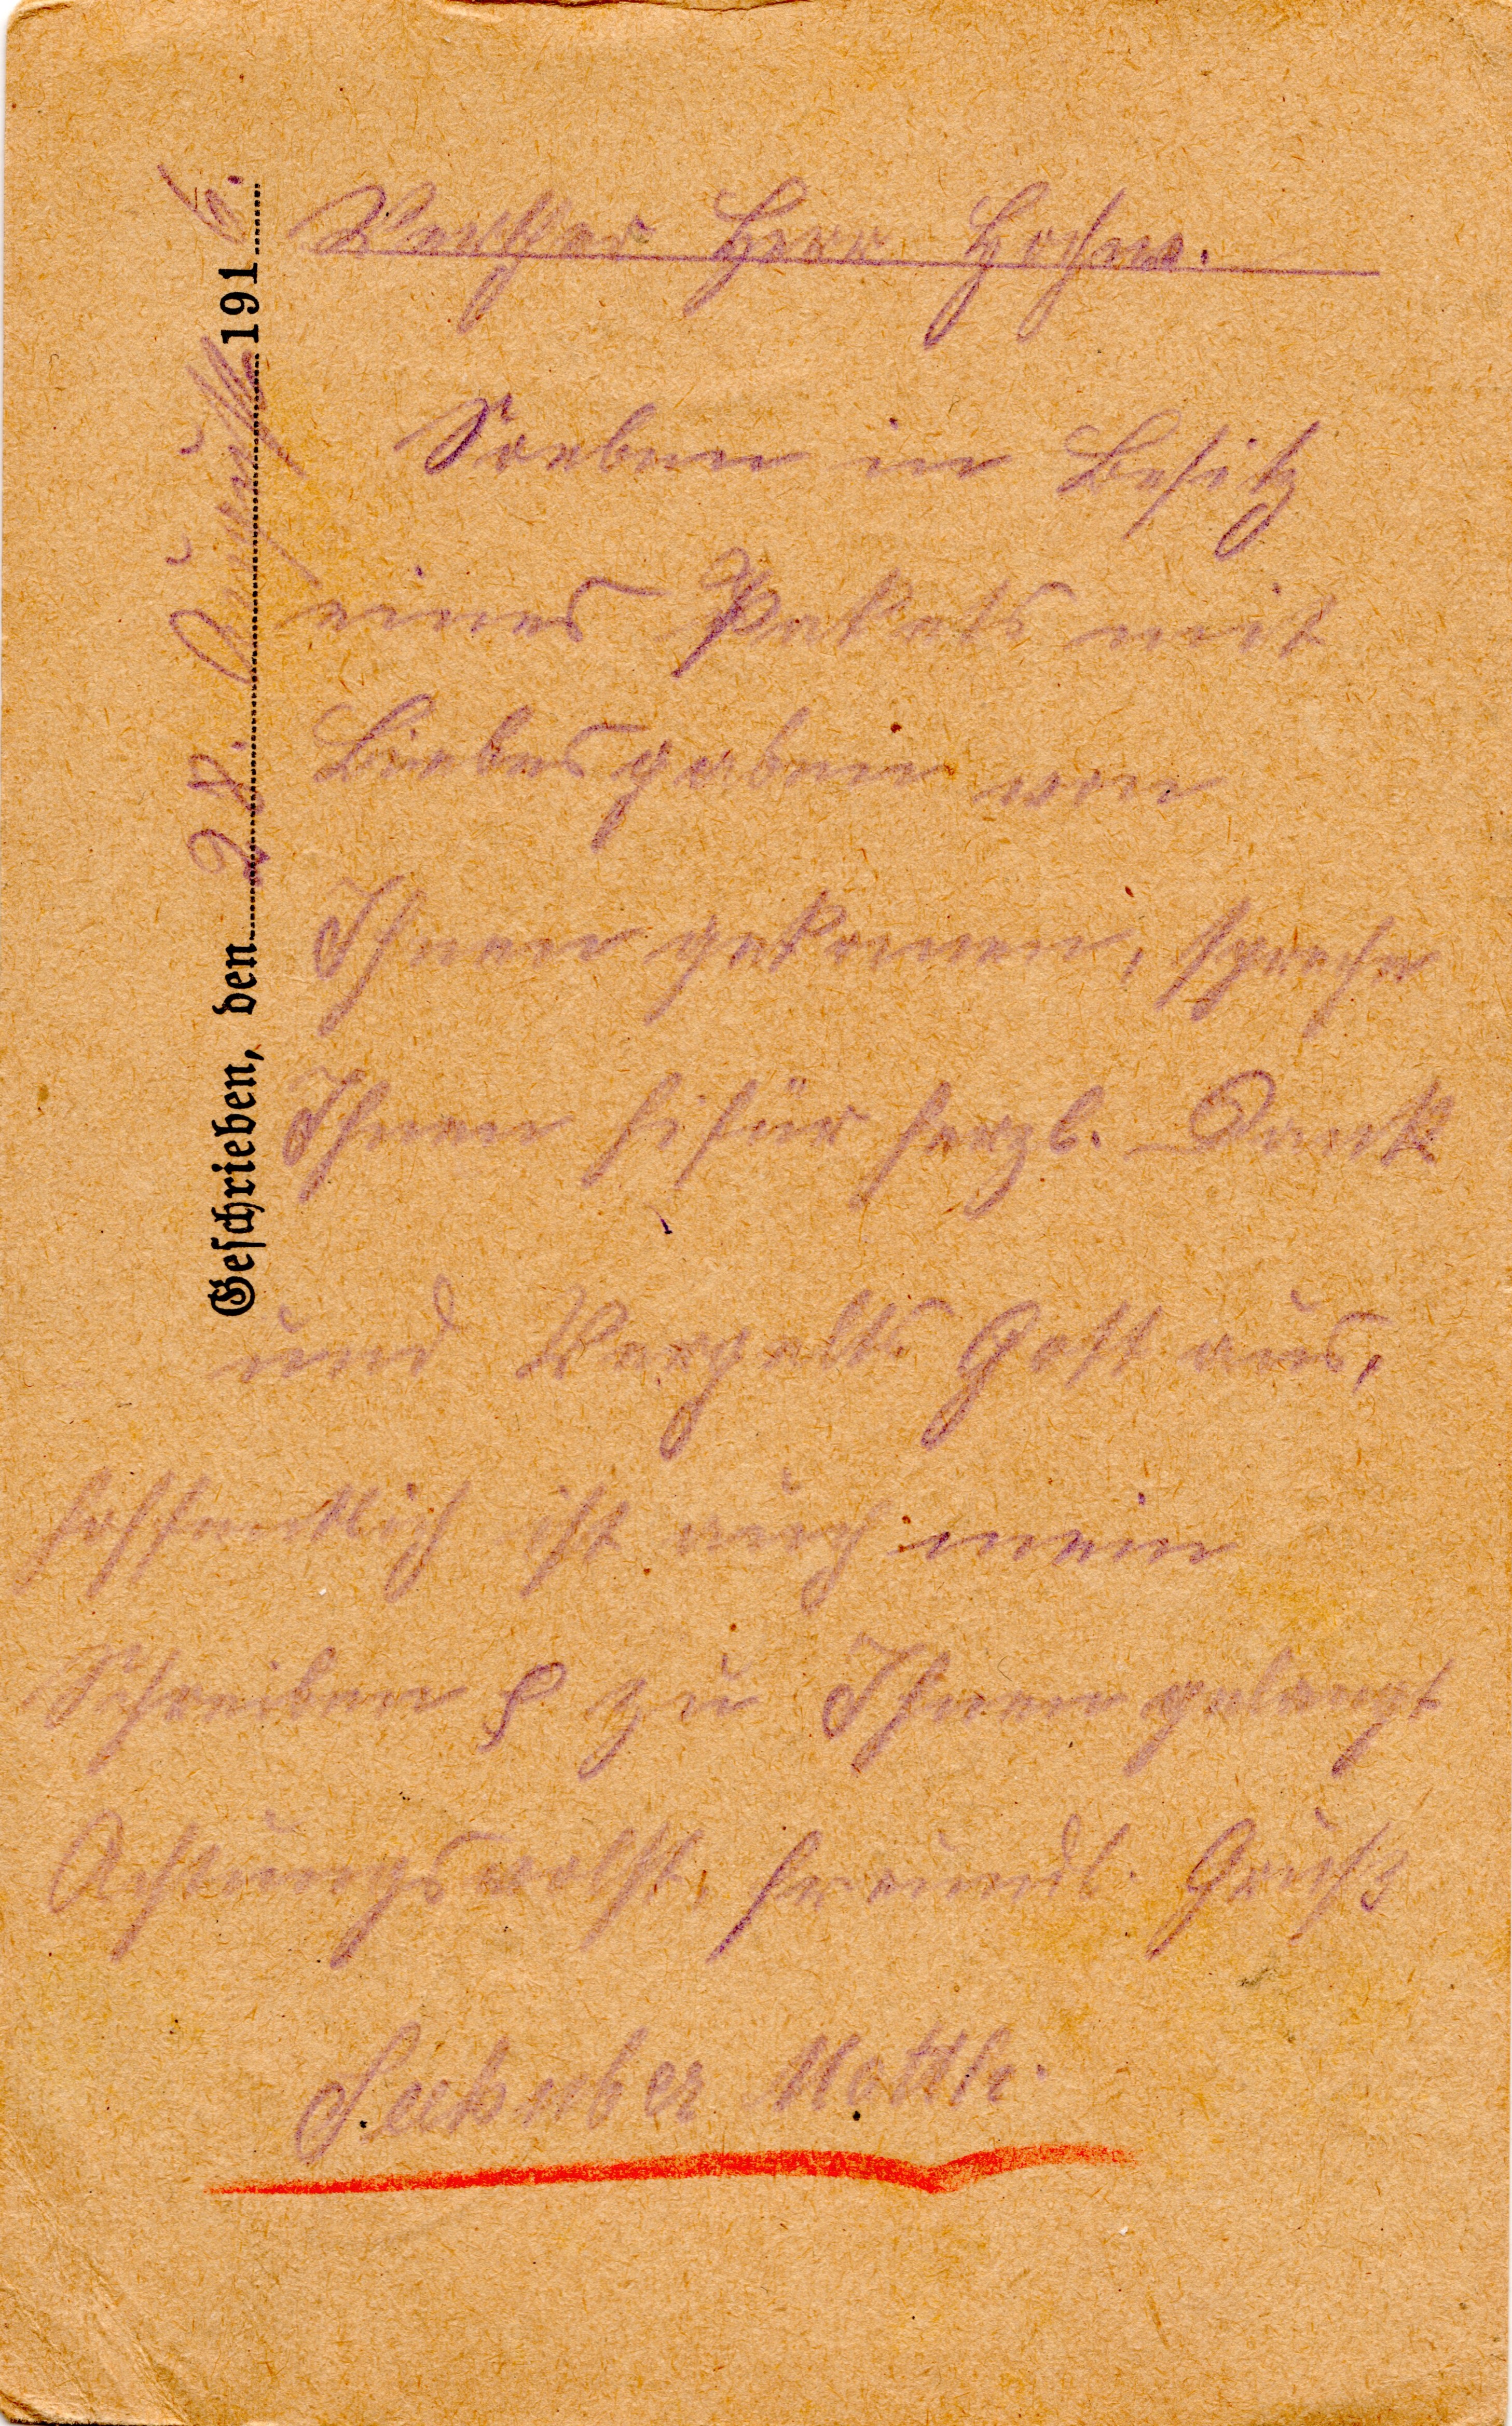 Geschrieben, den 28. August 1916.
Werther Herr
Soeben in Besitz
eines Pakets mit
Liebesgaben von
Ihnen gekomen, spreche
Ihnen hifür herzl. Dank
und Vergelts Gott aus,
hoffentlich ist auch mein
Schreiben zu Ihnen gelangt
Achtungsvollst, freundl. Gruß